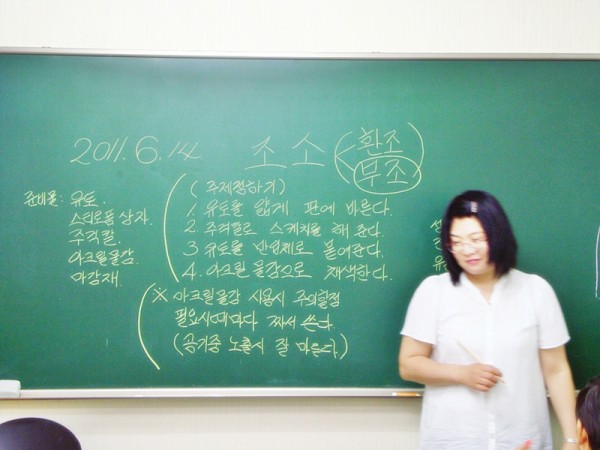 2011. 6. 14 조소 < 환조
부조
준비물: 유토.
스티로폼 상자.
주걱칼
아크릴물감.
마감재.
(주제정하기)
1. 유토를 얇게 판에 바른다.
2. 주걱칼로 스케치를 해 준다.
3 유토를 반입체로 붙여준다.
4. 아크릴 물감으로 채색한다.
※ 아크릴물감 사용시 주의할점
필요시때마다 짜서 쓴다.
(공기중 노출시 잘 마른다.)